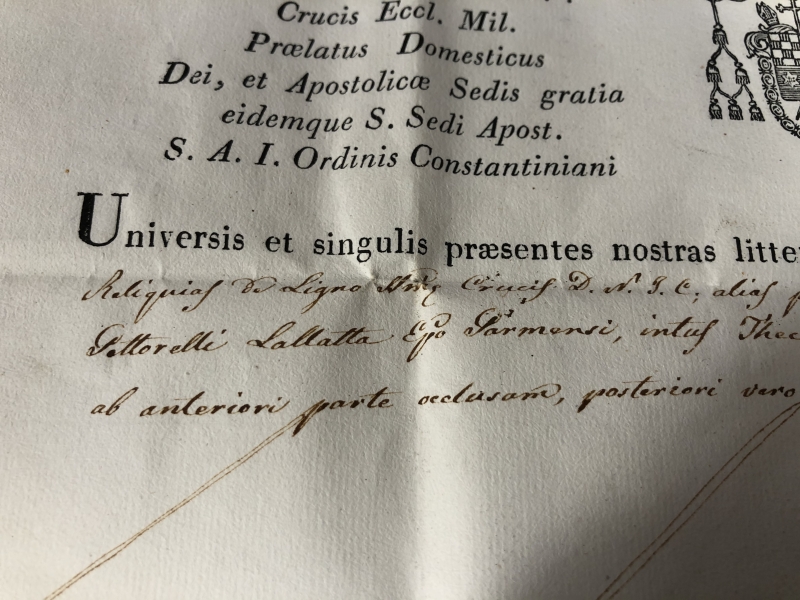 Crucis Eccl. Mil.
Prælatus Domesticus
Dei, et Apostolicæ Sedis gratia
eidemque S. Sedi Apost.
S. A. I. Ordinis Constantiniani
Universis et singulis præsentes nostras litte
Reliquias de Ligno Crucis D. N. J. C; alias
Pettorelli Lallatta Epo Parmensi, intus Thec
ab anteriori parte occlusam, posteriori vero